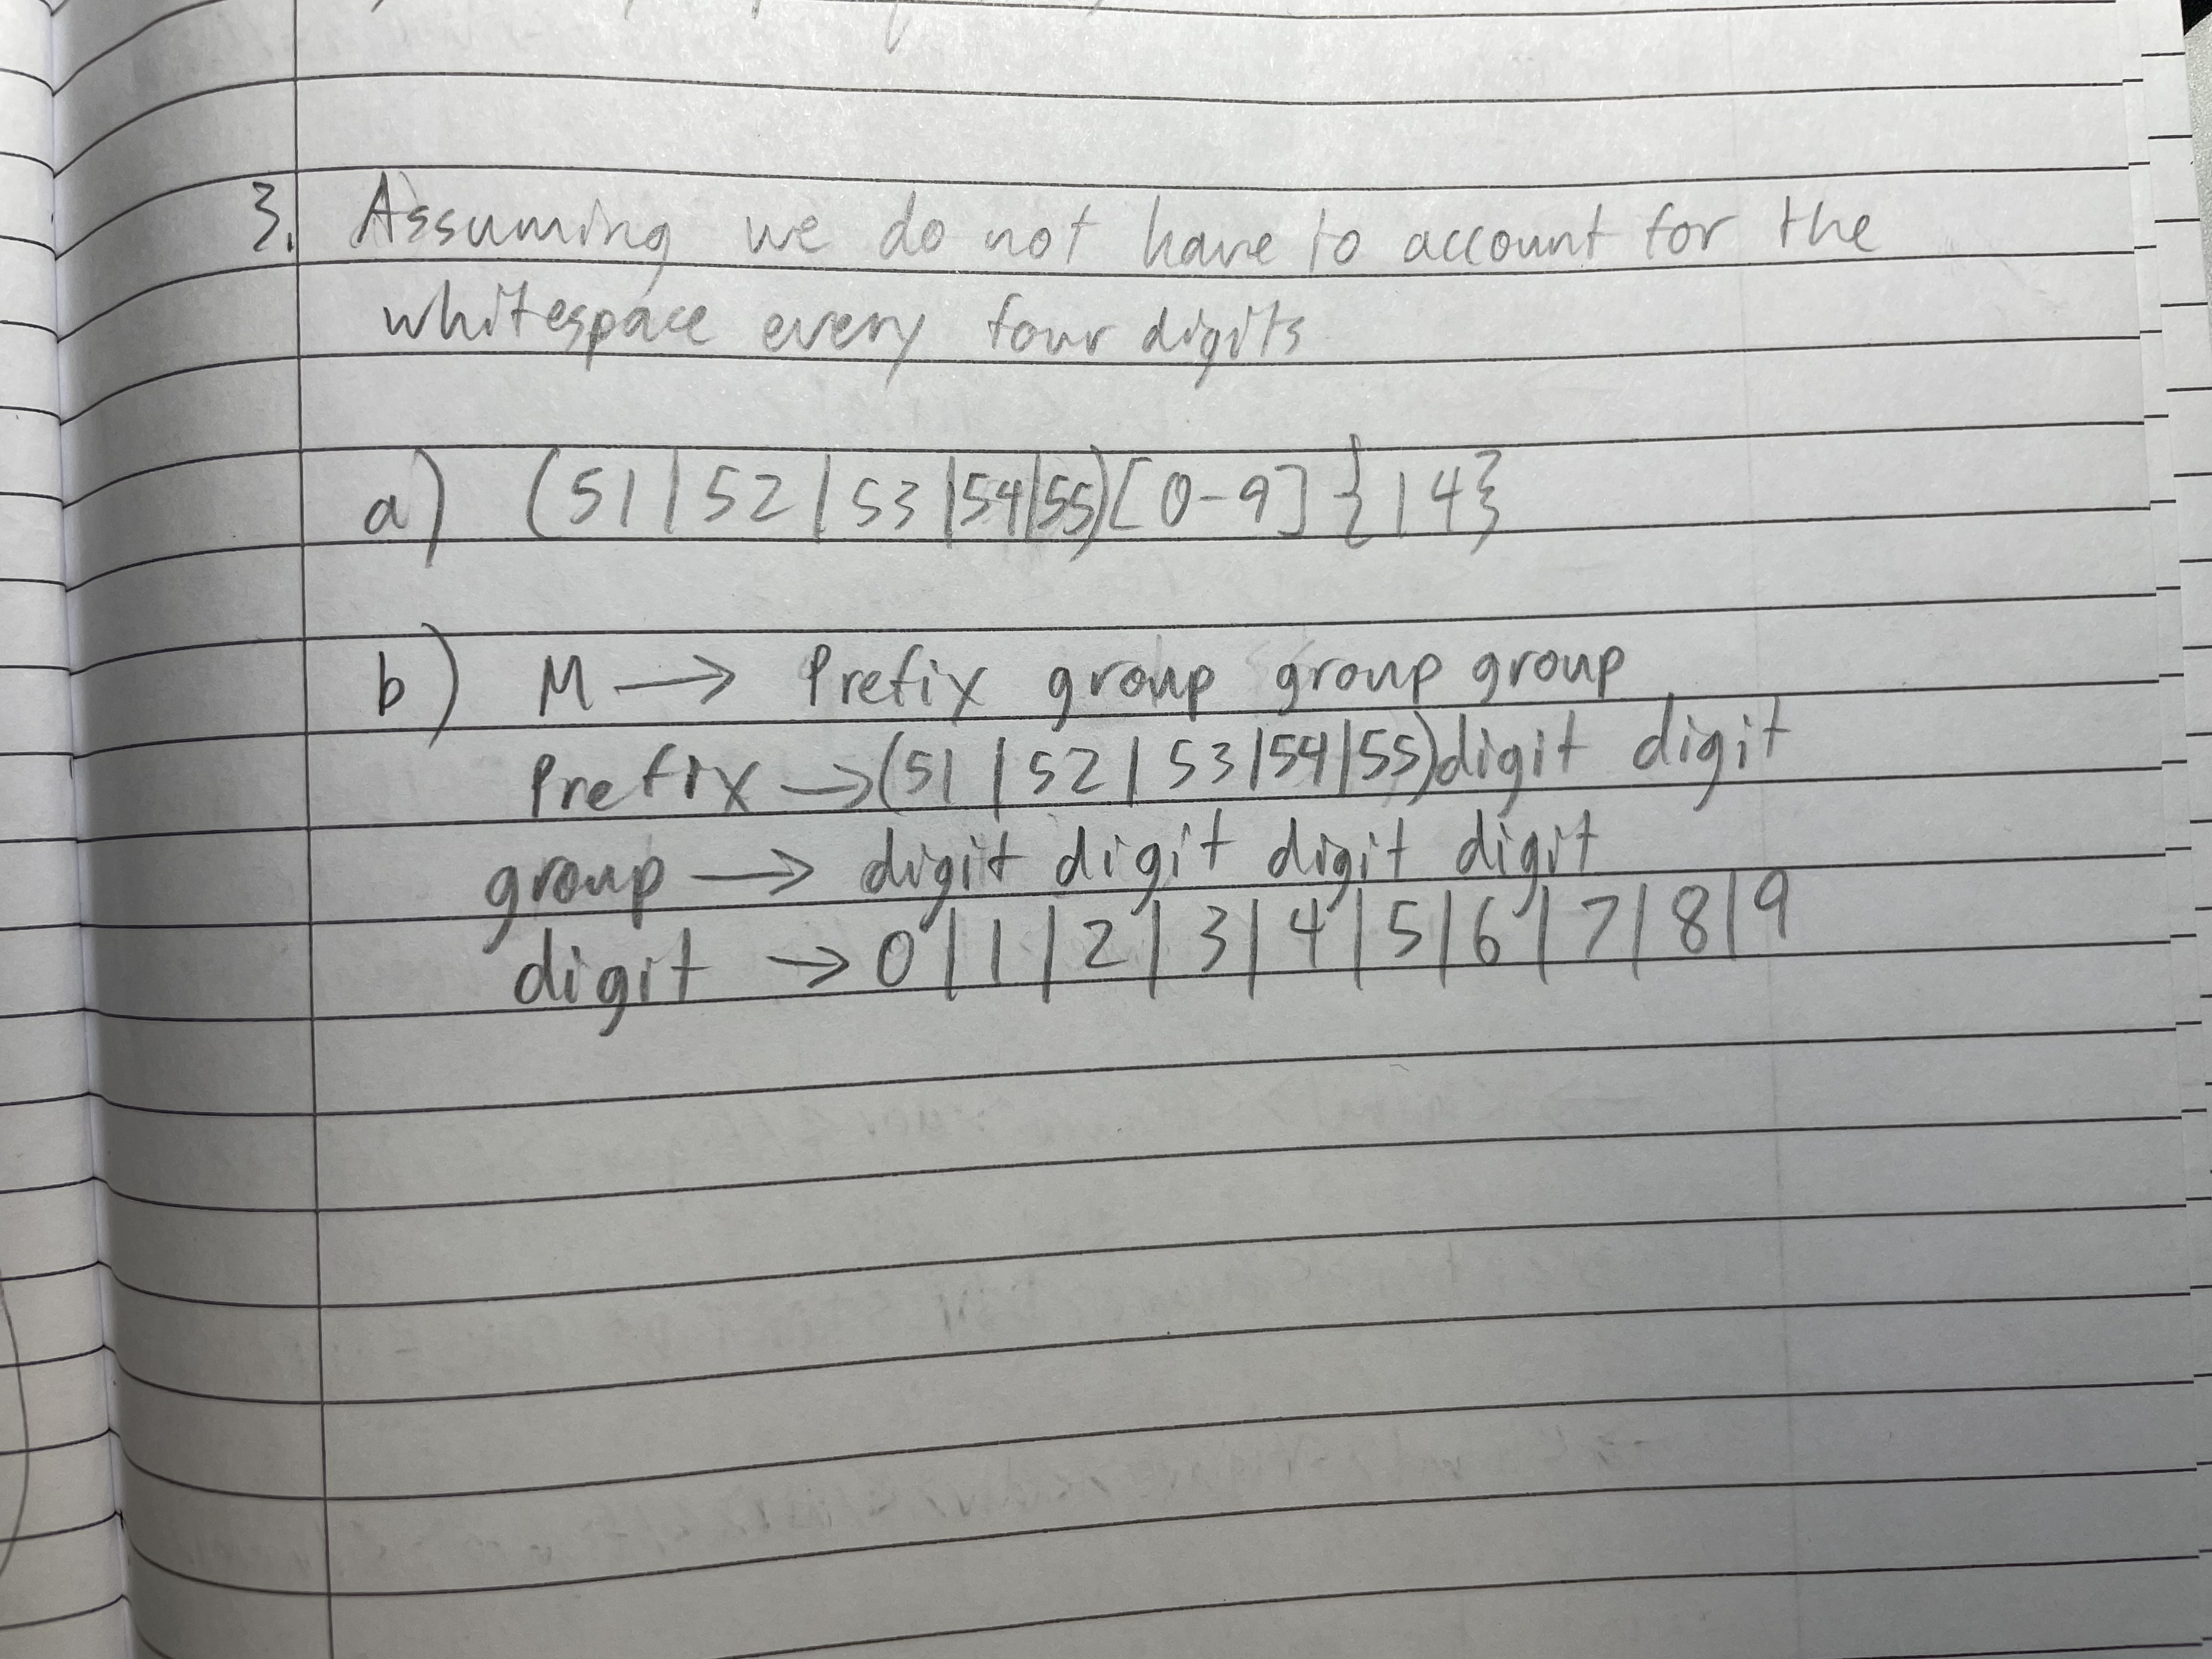 3. Assuming we do not have to account for the
whitespace every four digits
a) (51|52|53|54|55)[0-9]{14}
b) M → Prefix group group group
Prefix → (51|52|53|54|55)digit digit
group → digit digit digit digit
digit → 0|1|2|3|4|5|6|7|8|9